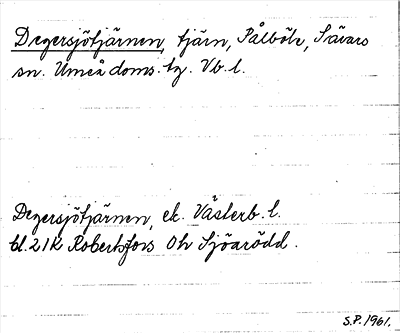 Degersjötjärnen, tjärn, Pålböle, Sävars
sn. Umeå doms. tg. Vb. l.
Degersjötjärnen, ek. Västerb. l.
bl. 21K Robertsfors 0h Sjöarödd.
S.P. 1961.